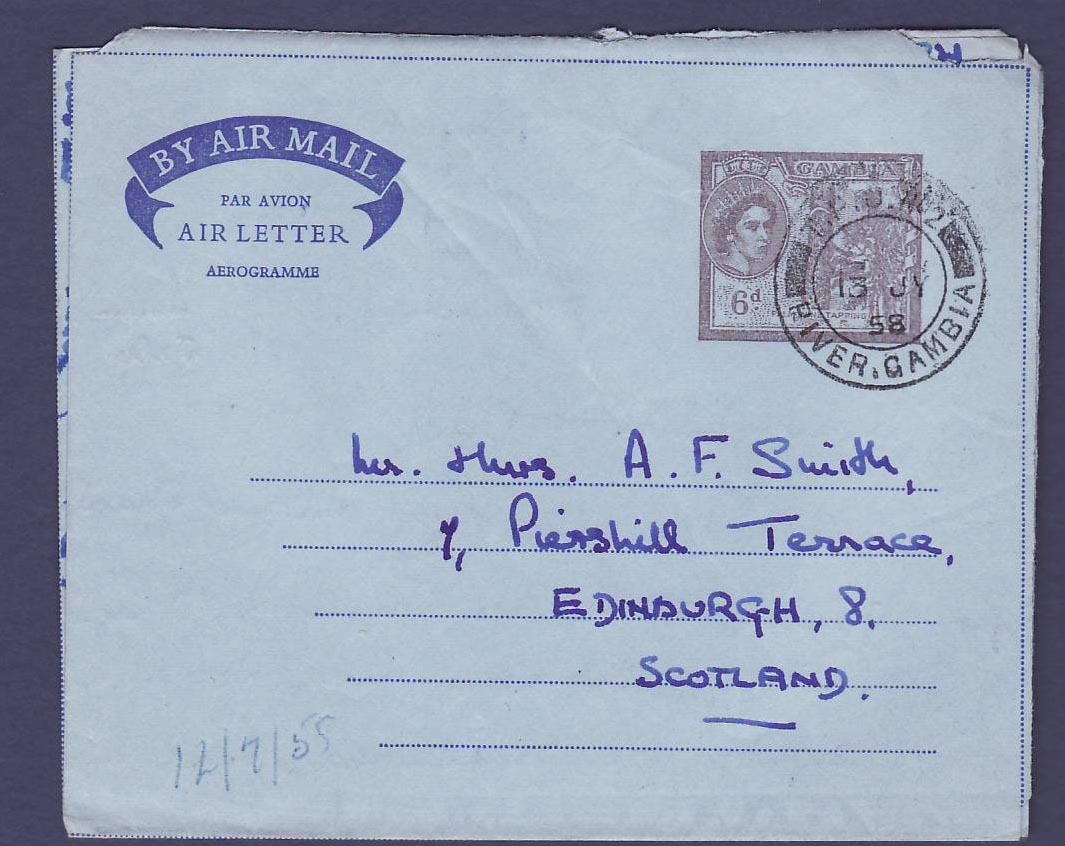 BY AIR MAIL
PAR AVION
AIR LETTER
AEROGRAMME
GAMBIA
6d
TAPPING
13 JY
58
RIVER GAMBIA
Mr. & Mrs. A. F. Smith,
7, Piershill Terrace,
EDINBURGH, 8.
SCOTLAND.
12/7/55